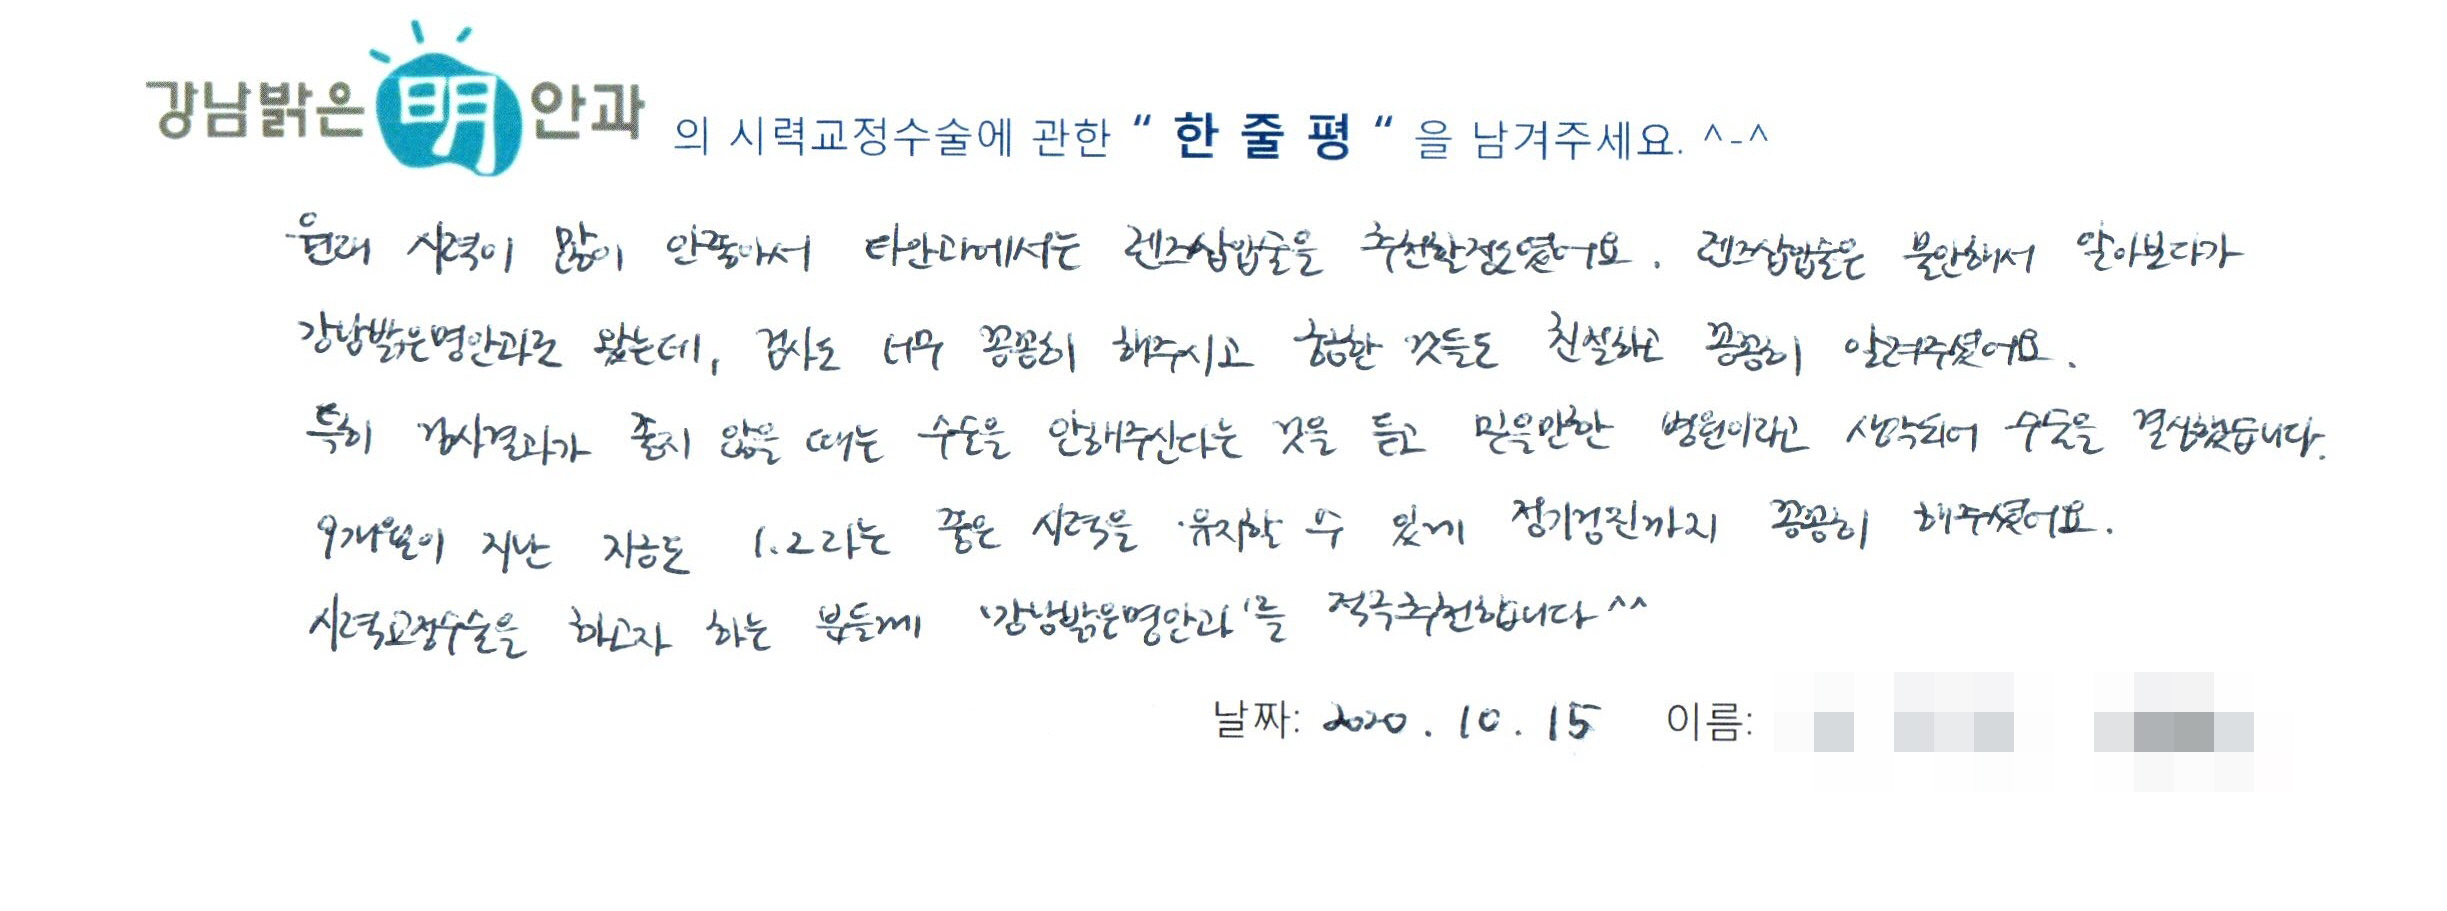 강남밝은明안과 의 시력교정수술에 관한 “ 한 줄 평 “ 을 남겨주세요. ^-^
원래 시력이 많이 안좋아서 타안과에서는 렌즈삽입술을 추천할정도였어요. 렌즈삽입술은 불안해서 알아보다가
강남밝은명안과로 왔는데, 검사도 너무 꼼꼼히 해주시고 궁금한 것들도 친절하고 꼼꼼히 알려주셨어요.
특히 검사결과가 좋지 않을 때는 수술을 안해주신다는 것을 듣고 믿을만한 병원이라고 생각되어 수술을 결심했습니다.
9개월이 지난 지금도 1.2라는 좋은 시력을 유지할 수 있게 정기검진까지 꼼꼼히 해주셨어요.
시력교정수술을 하고자 하는 분들께 '강남밝은명안과'를 적극추천합니다^^
날짜: 2020. 10. 15 이름: